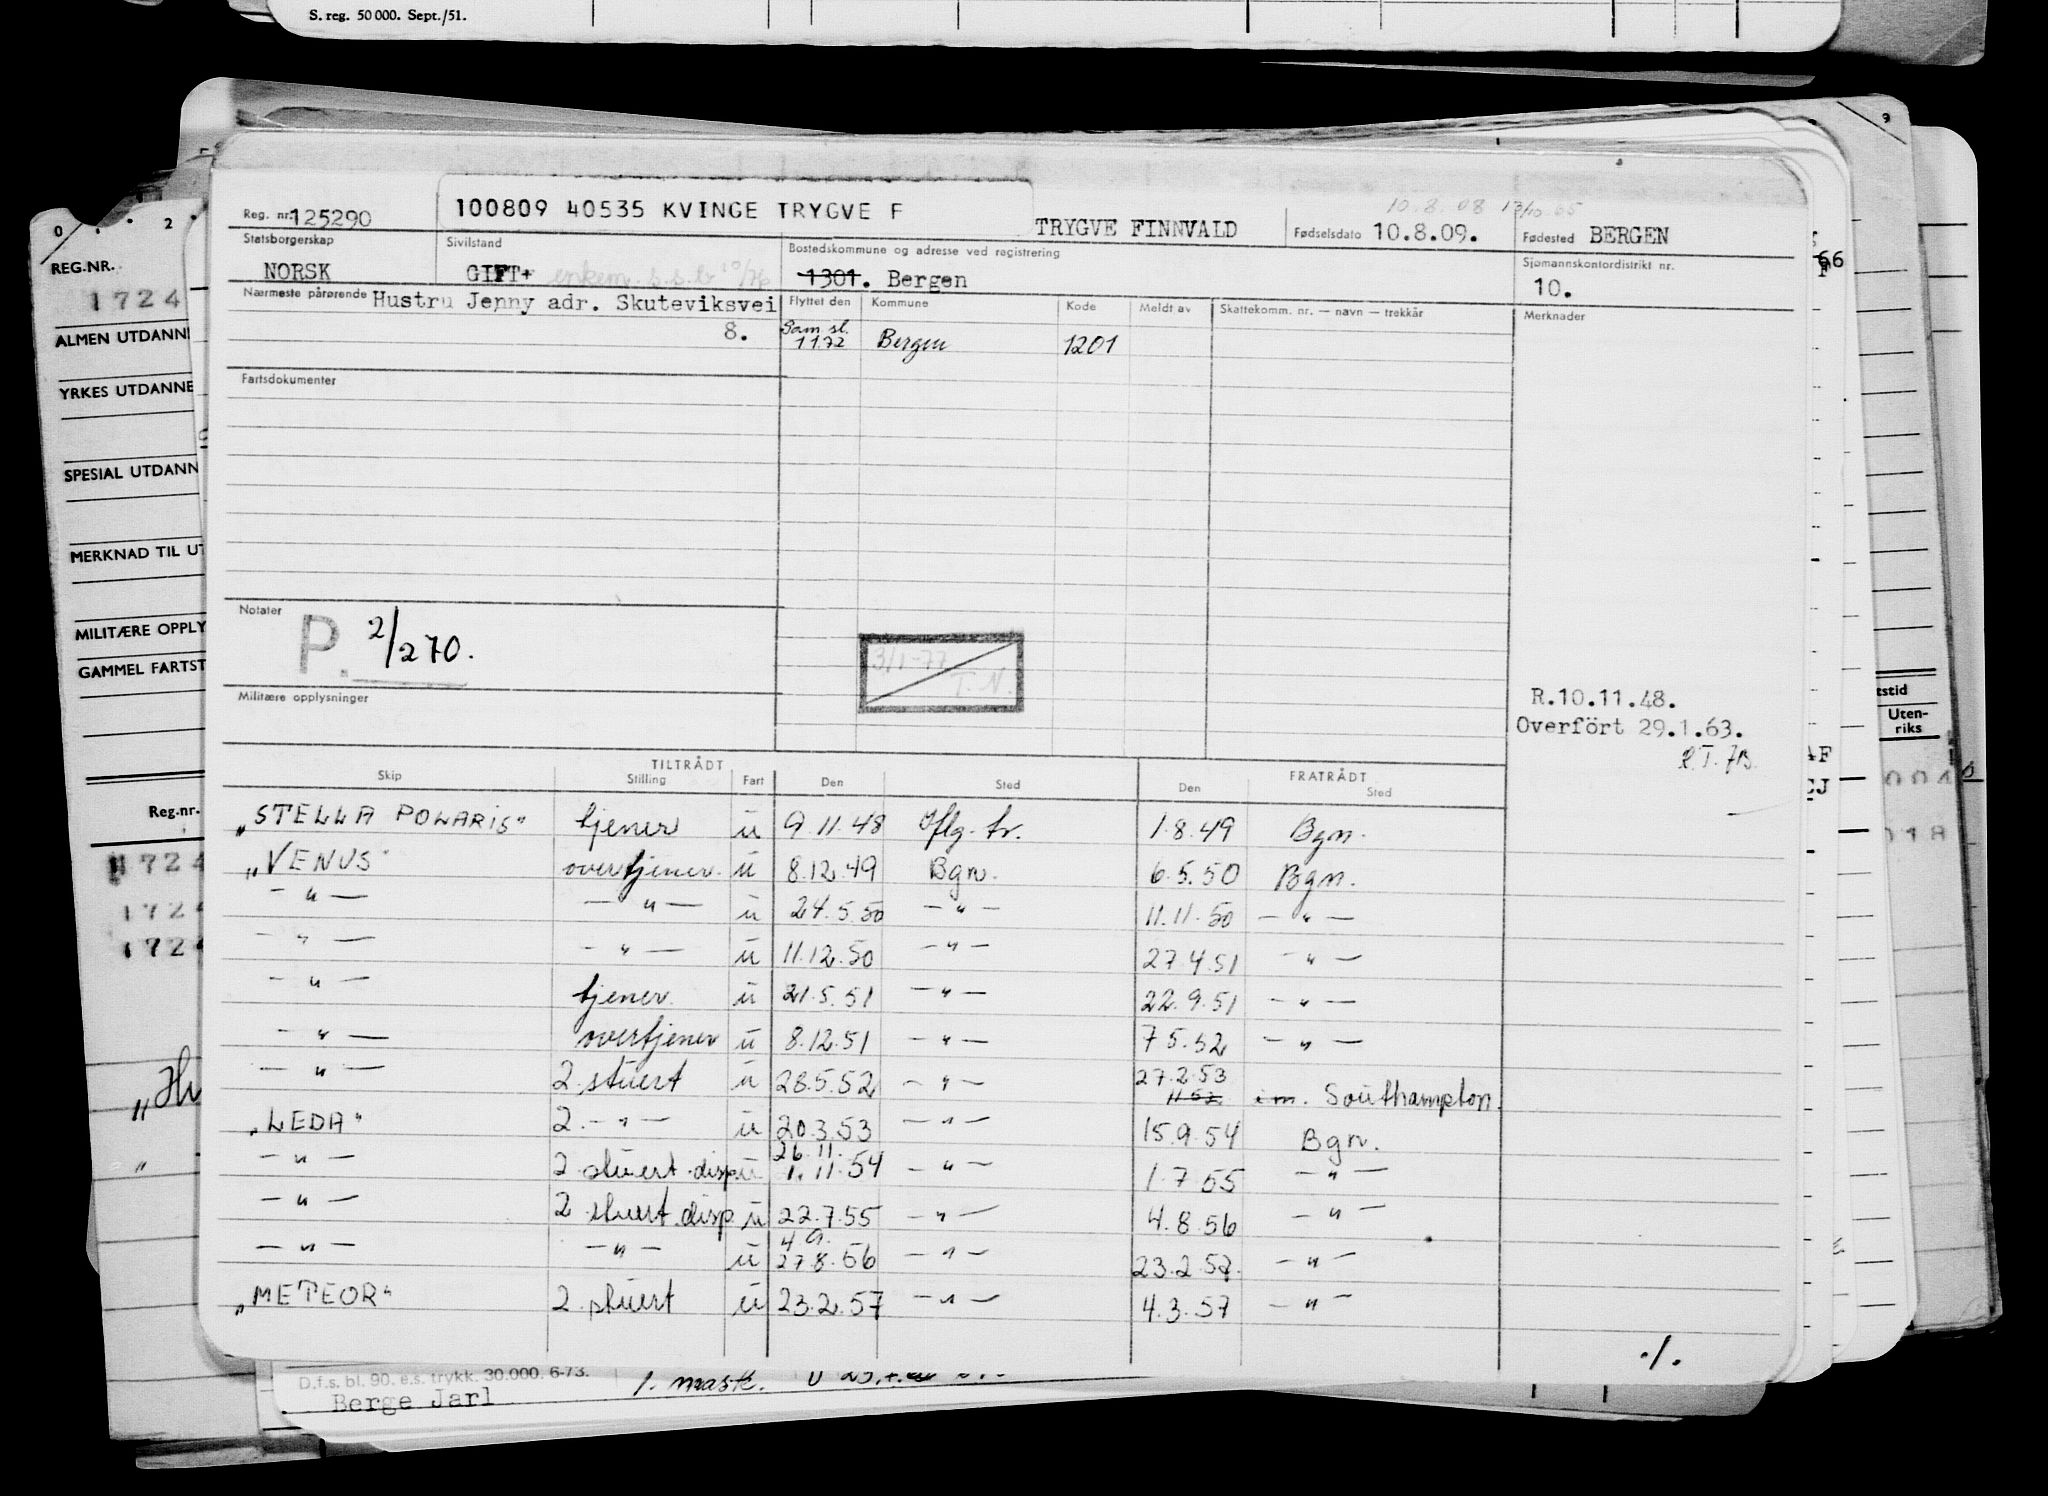 S. reg. 50 000. Sept./51.
9
0 2
REG.NR.
1724
ALMEN UTDANNE
YRKES UTDANNE
SPESIAL UTDANN
MERKNAD TIL UT
MILITÆRE OPPLY
GAMMEL FARTST
Reg.nr.
1724
1724
1724
66
F
tstid
Uten-
riks
Reg. nr. 125290
100809 40535 KVINGE TRYGVE F
TRYGVE FINNVALD
10.8.08 13/10 65
Fødselsdato 10.8.09.
Fødested BERGEN
Statsborgerskap NORSK
Sivilstand GIFT+ enkem. s.s.b 10/76
Bostedskommune og adresse ved registrering
1301. Bergen
Sjømannskontordistrikt nr.
10.
Nærmeste pårørende Hustru Jenny adr. Skuteviksvei
8.
Flyttet den Kommune Kode Meldt av Skattekomm. nr. — navn — trekkår Merknader
Sam.sl.
1172 Bergen 1201
Fartsdokumenter
Notater
P. 2/270.
3/1-77
T.N.
Militære opplysninger
R.10.11.48.
Overfört 29.1.63.
TILTRÅDT FRATRÅDT
Skip Stilling Fart Den Sted Den Sted
„STELLA POLARIS" tjener u 9.11.48 Iflg. tr. 1.8.49 Bgn.
„VENUS" overtjener. u 8.12.49 Bgn. 6.5.50 Bgn.
— " — — " — u 24.5.50 — " — 11.11.50 — " —
— " — — " — u 11.12.50 — " — 27.4.51 — " —
— " — tjener. u 21.5.51 — " — 22.9.51 — " —
— " — overtjener u 8.12.51 — " — 7.5.52 — " —
— " — 2.stuert u 28.5.52 — " — 27.2.53 i m. Southampton.
„LEDA" 2. — " — u 20.3.53 — " — 15.9.54 Bgn.
26.11.
— " — 2 stuert.disp u 1.11.54 — " — 1.7.55 — " —
— " — 2 stuert.disp u 22.7.55 — " — 4.8.56 — " —
4 9.
— " — — " — u 27.8.56 — " — 23.2.57. — " —
„METEOR" 2.stuert u 23.2.57 — " — 4.3.57 — " —
./.
D.f.s. bl. 90. e.s. trykk. 30.000. 6-73.
Berge Jarl 1. mask.